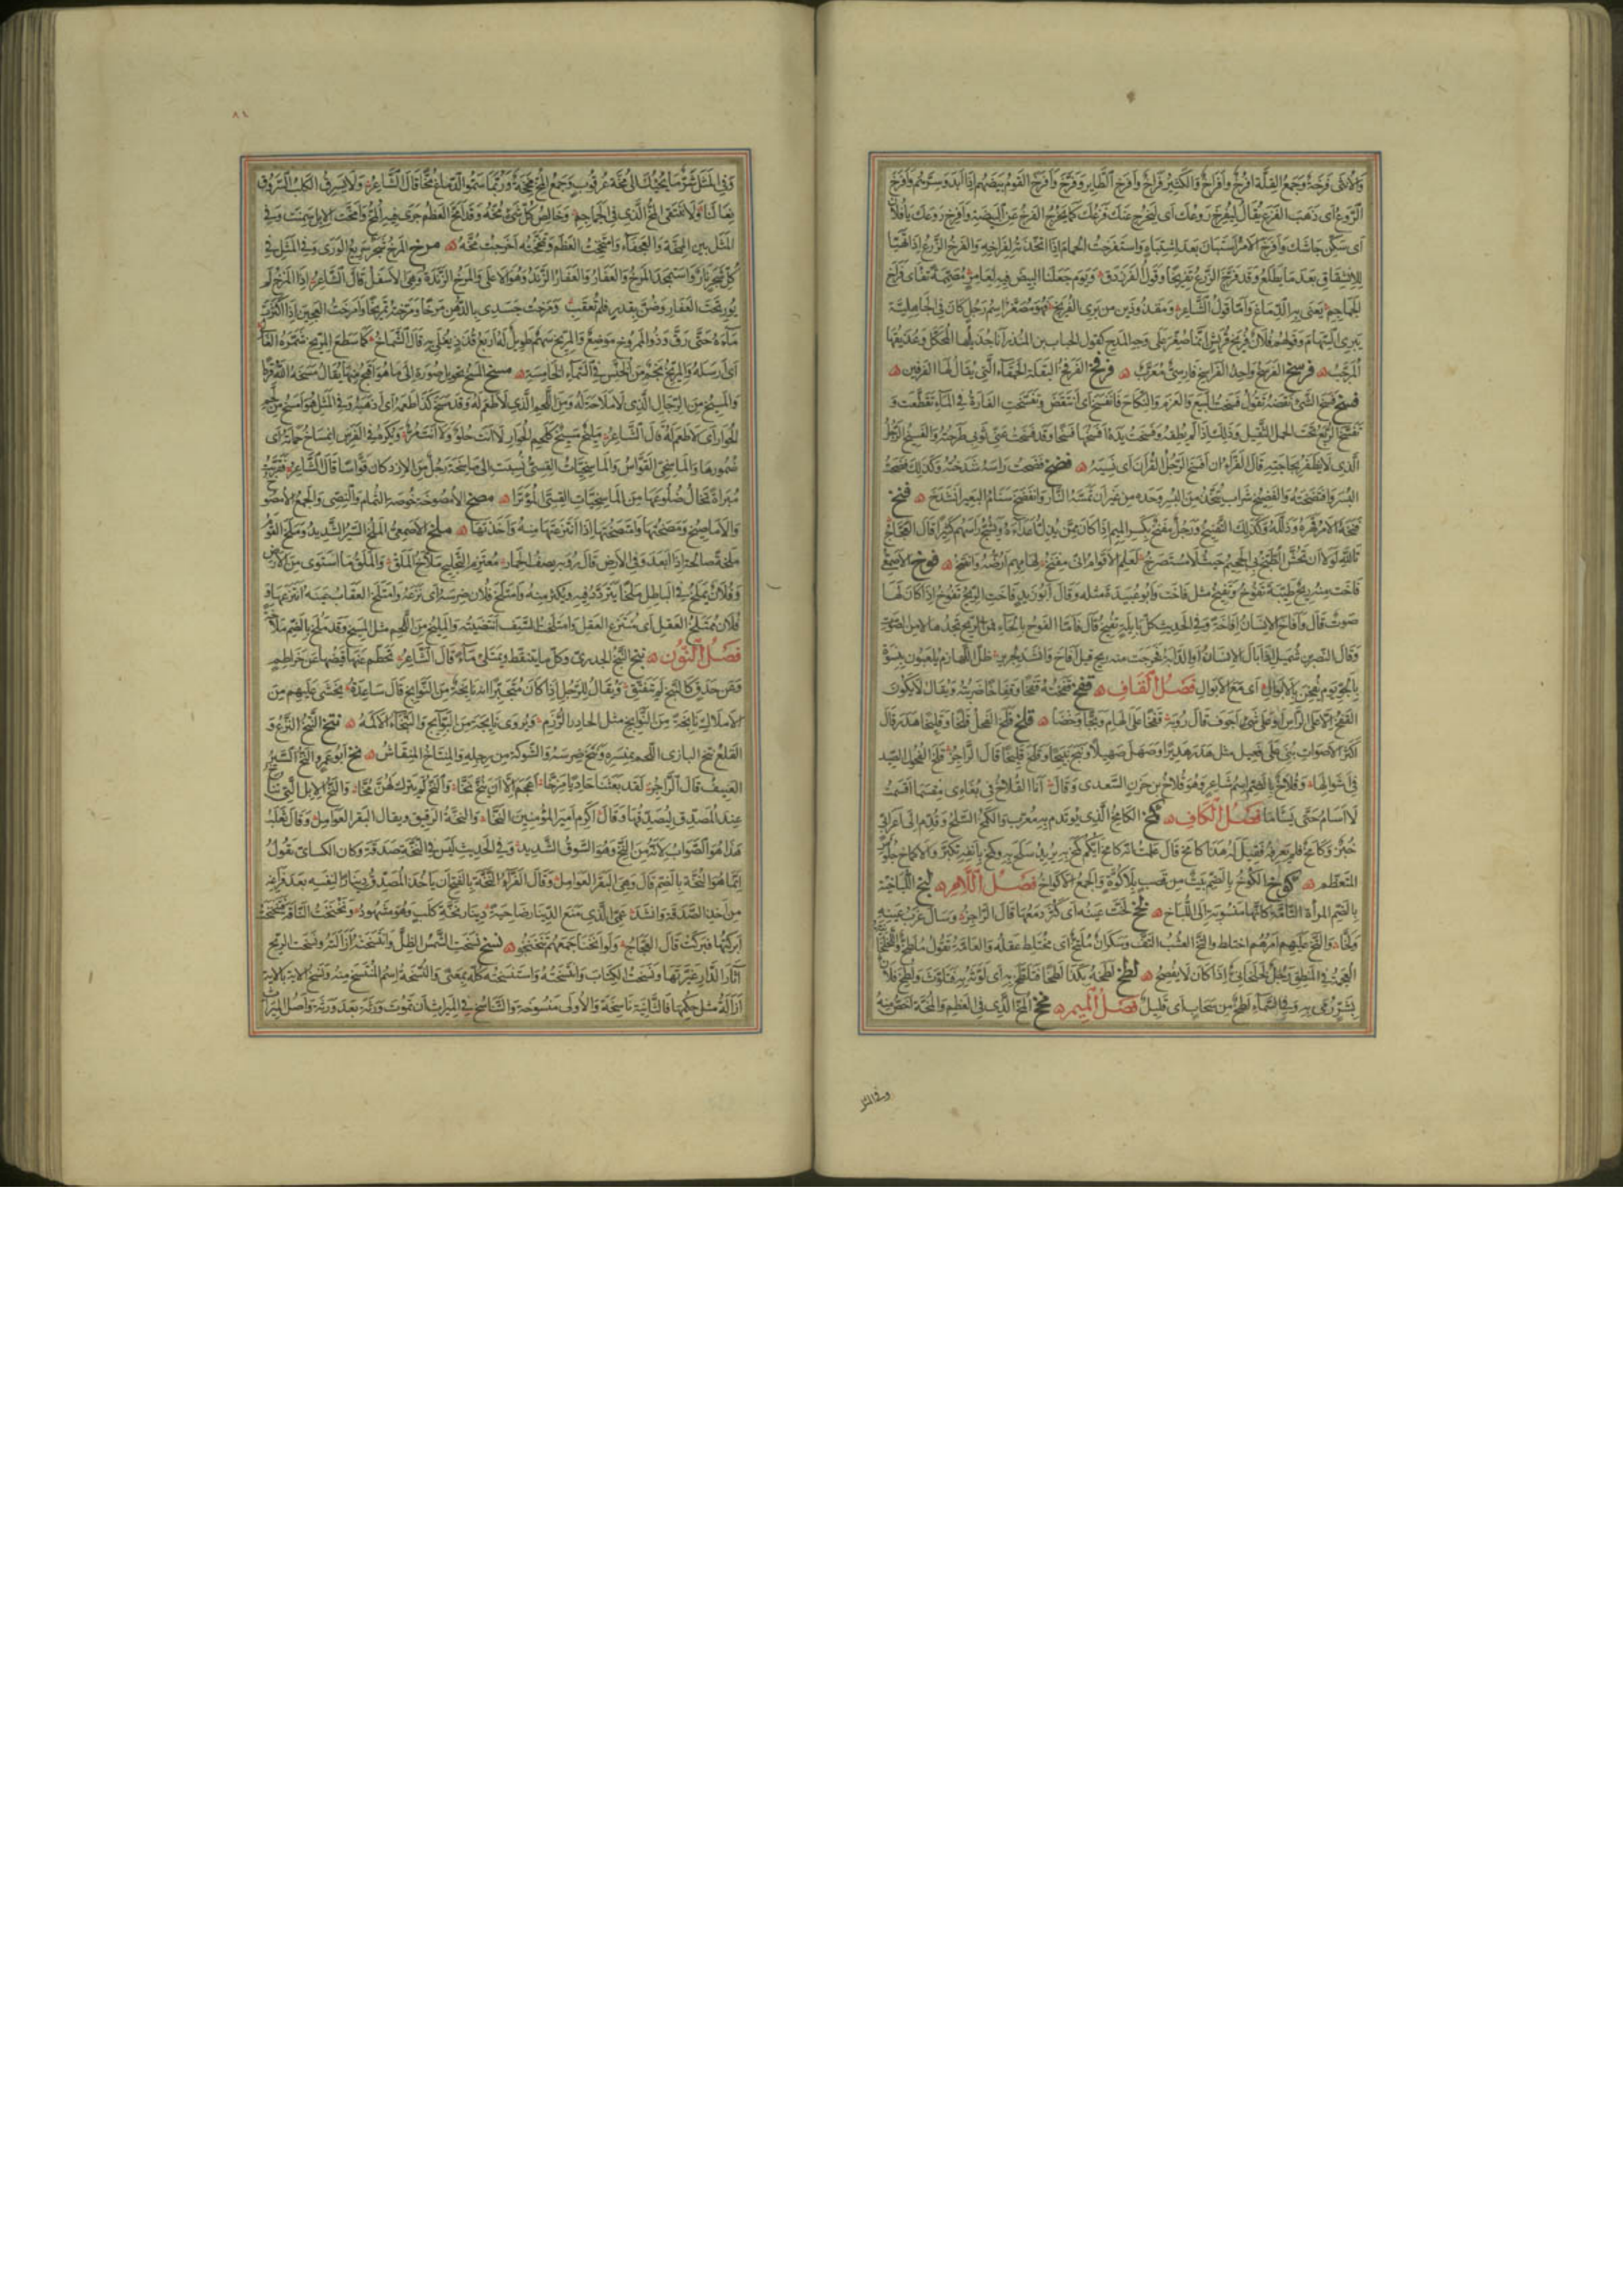 والانثى فرخة وجمع القلة افرخ وافراخ والكثير فراخ وافرخ الطاير وفرخ وافرخ القوم بيضهم اذا ابدوا سرهم وافرخ
الروع اى ذهب الفزع يقال ليفرخ روعك اى ليخرج عنك فزعك كما يخرج الفرخ عن البيضة وافرخ روعك يا فلان
اى سكن جاشك وافرخ الامر استبان بعد اشتباه واستفرخت الحمام اذا اتخذتها للفراخ والفرخ الزرع اذا تهيا
للانشقاق بعد ما يطلع وقد فرخ الزرع تفريخا وقول الفرزدق ويوم جعلنا البيض فيه لعامر مصممة تفاى فراخ
الجماجم يعنى به الدماغ واما قول الشاعر ومقذوذين من برى الفريخ فهو مصغر اسم رجل كان فى الجاهلية
يبرى السهام وقولهم فلان فريخ قريش انما صغر على وجه المدح كقول الحباب بن المنذر انا جذيلها المحكك وعذيقها
المرجب فرسخ الفرسخ واحد الفراسخ فارسى معرب فرفخ الفرفخ البقلة الحمقاء التى يقال لها الفرفين
فسخ فسخ الشئ نقضه تقول فسخت البيع والعزم والنكاح فانفسخ اى انتقض وتفسخت الفارة فى الماء تقطعت و
تفسخ الربع تحت الحمل الثقيل وذلك اذا لم يطقه وفسخت يده افسخها فسخا وقد فسخت عنى ثوبى طرحته والفسيخ الرجل
الذى لا يظفر بحاجته قال الفراء ان افسخ الرجل القران اى نسيه فضخ فضخت راسه شدخته وكذلك فضخت
البسر وافتضخته والفضيخ شراب يتخذ من البسر وحده من غير ان تمسه النار وانفضخ سنام البعير انشدخ فنخ
فنخه الامر قهره وذلله وكذلك التفنيخ ورجل مفنخ بكسر الميم اذا كان ممن يذل اعداءه ويشج راسهم كثيرا قال العجاج
تالله لولا ان تحش الطبخ بى الجحيم حيث لا مستصرخ لعلم الاقوام انى مفنخ لهامهم ارضه وانقخ فوخ الاصمعى
فاخت منه ريح طيبة تفوخ وتفيخ مثل فاحت وابو عبيدة مثله وقال ابو زيد فاخت الريح تفوخ اذا كان لها
صوت قال وافاخ الانسان افاخة وفى الحديث كل بايلة تفيخ قال فاما الفوح بالحاء فمن الريح تجدها لا من الصوت
وقال النضر بن شميل اذا بال الانسان او الدابة فخرجت منه ريح قيل افاخ وانشد لجرير ظل اللهازم يلعبون بنسوة
بالجو يوم يفخن بالابوال اى مع الابوال فصل القاف قفخ قفخته قفخا وقفاخا ضربته ويقال لا يكون
القفخ الا على الراس او على شئ اجوف قال روبة قفخا على الهام وبجا وخضا قلخ قلخ الفحل قلخا وقليخا هدر قال
اكثر الاصوات بنى على فعيل مثل هدر هديرا وصهل صهيلا ونبح نبيحا وقلخ قليخا قال الراجز قلخ الفحول الصيد
فى اشوالها وقلاخ بالضم اسم شاعر وهو قلاخ بن حزن السعدى وقال انا القلاخ فى بغاءى مقسما اقسمت
لا اسام حتى يساما فصل الكاف كمخ الكامخ الذى يوتدم به معرب والكمخ السلح وقدم الى اعرابى
خبز وكامخ فلم يعرفه فقيل له هذا كامخ قال علمت انه كامخ ايكم كمخ به يريد سلح به وكمخ بانفه تكبر والاكماخ جلوس
المتعظم كوخ الكوخ بالضم بيت من قصب بلا كوة والجمع الاكواخ فصل اللام لبخ اللباخية
بالضم المراة التامة كانها منسوبة الى اللباخ لخخ لخت عينه اى كثر دمعها قال الراجز وسال غرب عينه
ولخا والتخ عليهم امرهم اختلط والتخ العشب التف وسكران ملتخ اى مختلط عقله والعامة تقول ملطخ واللخلخة
العجمة فى المنطق رجل لخلخانى اذا كان لا يفصح لطخ لطخه بكذا لطخا فتلطخ به اى لوثه به فتلوث ولطخ فلان
بشر رمى به وفى السماء لطخ من سحاب اى قليل فصل الميم مخخ المخ الذى فى العظم والمخة اخص منه
وفى المثل
٨١
وفى المثل شر ما يجيئك الى مخة عرقوب وجمع المخ مخخة وربما سموا الدماغ مخا قال الشاعر ولا يسرق الكلب السروق
نعالنا ولا ننتقى المخ الذى فى الجماجم وخالص كل شئ مخه وقد امخ العظم جرى فيه المخ وامخت الابل سمنت وفى
المثل بين الممخة والعجفاء وامتخخت العظم وتمخخته اخرجت مخه مرخ المرخ شجر سريع الورى وفى المثل فى
كل شجر نار واستمجد المرخ والعفار والعفار الزند وهو الاعلى والمرخ الزندة وهى الاسفل قال الشاعر اذا المرخ لم
يور تحت العفار وضن بقدر فلم تعقب ومرخت جسدى بالدهن مرخا ومرخته تمريخا وامرخت العجين اذا اكثرت
ماءه حتى رق وذو الممروخ موضع والمريخ سهم طويل له اربع قذذ يغلى به قال الشماخ كما سطع المريخ شمره الغالى
اى ارسله والمريخ نجم من الخنس فى السماء الخامسة مسخ المسخ تحويل صورة الى ما هو اقبح منها يقال مسخه الله قردا
والمسيخ من الرجال الذى لا ملاحة له ومن اللحم الذى لا طعم له وقد مسخ كذا طعمه اى اذهبه وفى المثل هو امسخ من لحم
الحوار اى لا طعم له قال الشاعر مليخ مسيخ كلحم الحوار لا انت حلو ولا انت مر ويكره فى الفرس انمساخ حماته اى
ضمورها والماسخى القواس والماسخيات القسى نسبت الى ماسخة رجل من الازد كان قواسا قال الشاعر فقربت
مبراة تخال ضلوعها من الماسخيات القسى الموترا مصخ الامصوخة خوصة الثمام والنصى والجمع الامصوخ
والاماصيخ ومصختها وامتصختها اذا انتزعتها منه واخذتها ملخ الاصمعى الملخ السير الشديد وملخ القوم
ملخة صالحة اذا ابعدوا فى الارض قال روبة يصف الحمار معتزم التجليح ملاخ الملق والملق ما استوى من الارض
وفلان يملخ فى الباطل ملخا يتردد فيه ويكثر منه وامتلخ فلان ضرسه اى نزعه وامتلخ العقاب عينه انتزعها و
فلان ممتلخ العقل اى منتزع العقل وامتلخت السيف انتضيته والمليخ من اللحم مثل المسيخ وقد ملخ بالضم ملاخة
فصل النون نبخ النبخ الجدرى وكل ما يتنفط ويمتلئ ماء قال الشاعر تحطم عنها قيضها عن خراطم
وعن حدق كالنبخ لم تتفتق ويقال للرجل اذا كان متجبرا انه نابخة من النوابخ قال ساعدة يخشى عليهم من
الاملاك نابخة من النوابخ مثل الحادر الرزم ويروى نابجة من البوايج والنبخاء الاكمة نتخ النتخ النزع و
القلع نتخ البازى اللحم بمنسره ونتخ ضرسه والشوكة من رجله والمنتاخ المنقاش نخخ ابو عمرو النخ السير
العنيف قال الراجز لقد بعثنا حاديا مزخا اعجم الا ان ينخ نخا والنخ لم يترك لهن مخا والنخ الابل التى تناخ
عند المصدق ليصدقها وقال اكرم امير المؤمنين النخا والنخة الرقيق ويقال البقر العوامل وقال ثعلب
هذا هو الصواب لانه من النخ وهو السوق الشديد وفى الحديث ليس فى النخة صدقة وكان الكسائى يقول
انما هو النخة بالضم قال وهى البقر العوامل وقال الفراء النخة بالفتح ان ياخذ المصدق دينارا لنفسه بعد فراغه
من اخذ الصدقة وانشد عمى الذى منع الدينار ضاحية دينار نخة كلب وهو مشهود ونخنخت الناقة فتنخنخت
ابركتها فبركت قال العجاج ولو انخنا جمعهم تنخنخوا نسخ نسخت الشمس الظل وانتسخته ازالته ونسخت الريح
آثار الدار غيرتها ونسخت الكتاب وانتسخته واستنسخته كله بمعنى والنسخة اسم المنتسخ منه ونسخ الاية بالاية
ازالة مثل حكمها فالثانية ناسخة والاولى منسوخة والتناسخ فى الميراث ان تموت ورثة بعد ورثة واصل الميراث